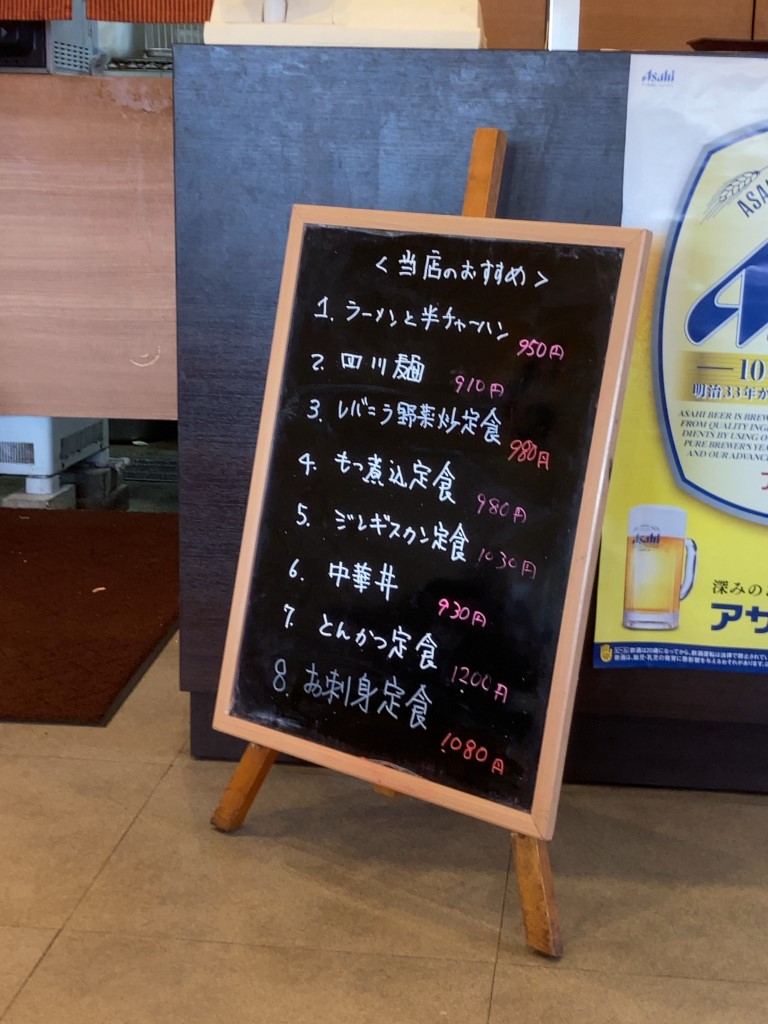 ＜当店のおすすめ＞
1. ラーメンと半チャーハン 950円
2. 四川麺 910円
3. レバニラ野菜炒定食 980円
4. もつ煮込定食 980円
5. ジンギスカン定食 1030円
6. 中華丼 930円
7. とんかつ定食 1200円
8. お刺身定食 1080円
Asahi
ASAHI BEER IS BREW
FROM QUALITY ING
DIENTS BY USING O
PURE BREWER'S YE
AND OUR ADVANC
明治33年か
10
Asahi
深みの
アサ